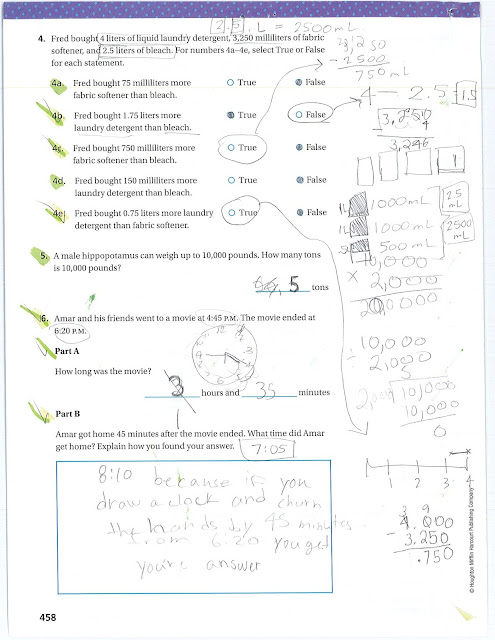 2.5 L = 2500 mL
4. Fred bought 4 liters of liquid laundry detergent, 3,250 milliliters of fabric
softener, and 2.5 liters of bleach. For numbers 4a–4e, select True or False
for each statement.
3,250
- 2500
750 mL
4a. Fred bought 75 milliliters more
fabric softener than bleach.
True
False
4 - 2.5 = 1.5
4b. Fred bought 1.75 liters more
laundry detergent than bleach.
True
False
3,250
4
3,246
4c. Fred bought 750 milliliters more
fabric softener than bleach.
True
False
1
4d. Fred bought 150 milliliters more
laundry detergent than bleach.
True
False
4e. Fred bought 0.75 liters more laundry
detergent than fabric softener.
True
False
1L 1000 mL
1L 1000 mL
500 mL
2.5
mL
2500
mL
5. A male hippopotamus can weigh up to 10,000 pounds. How many tons
is 10,000 pounds?
5 tons
10,000
× 2,000
6. Amar and his friends went to a movie at 4:45 P.M. The movie ended at
6:20 P.M.
Part A
How long was the movie?
hours and 35 minutes
1
÷ 10,000
2,000
5
2,000 10,000
10,000
0
Part B
Amar got home 45 minutes after the movie ended. What time did Amar
get home? Explain how you found your answer. 7:05
8:10 because if you
draw a clock and churn
the hands by 45 minutes
from 6:20 you get
you're answer
1 2 3 4
3 9
4.000
- 3.250
.750
© Houghton Mifflin Harcourt Publishing Company
458